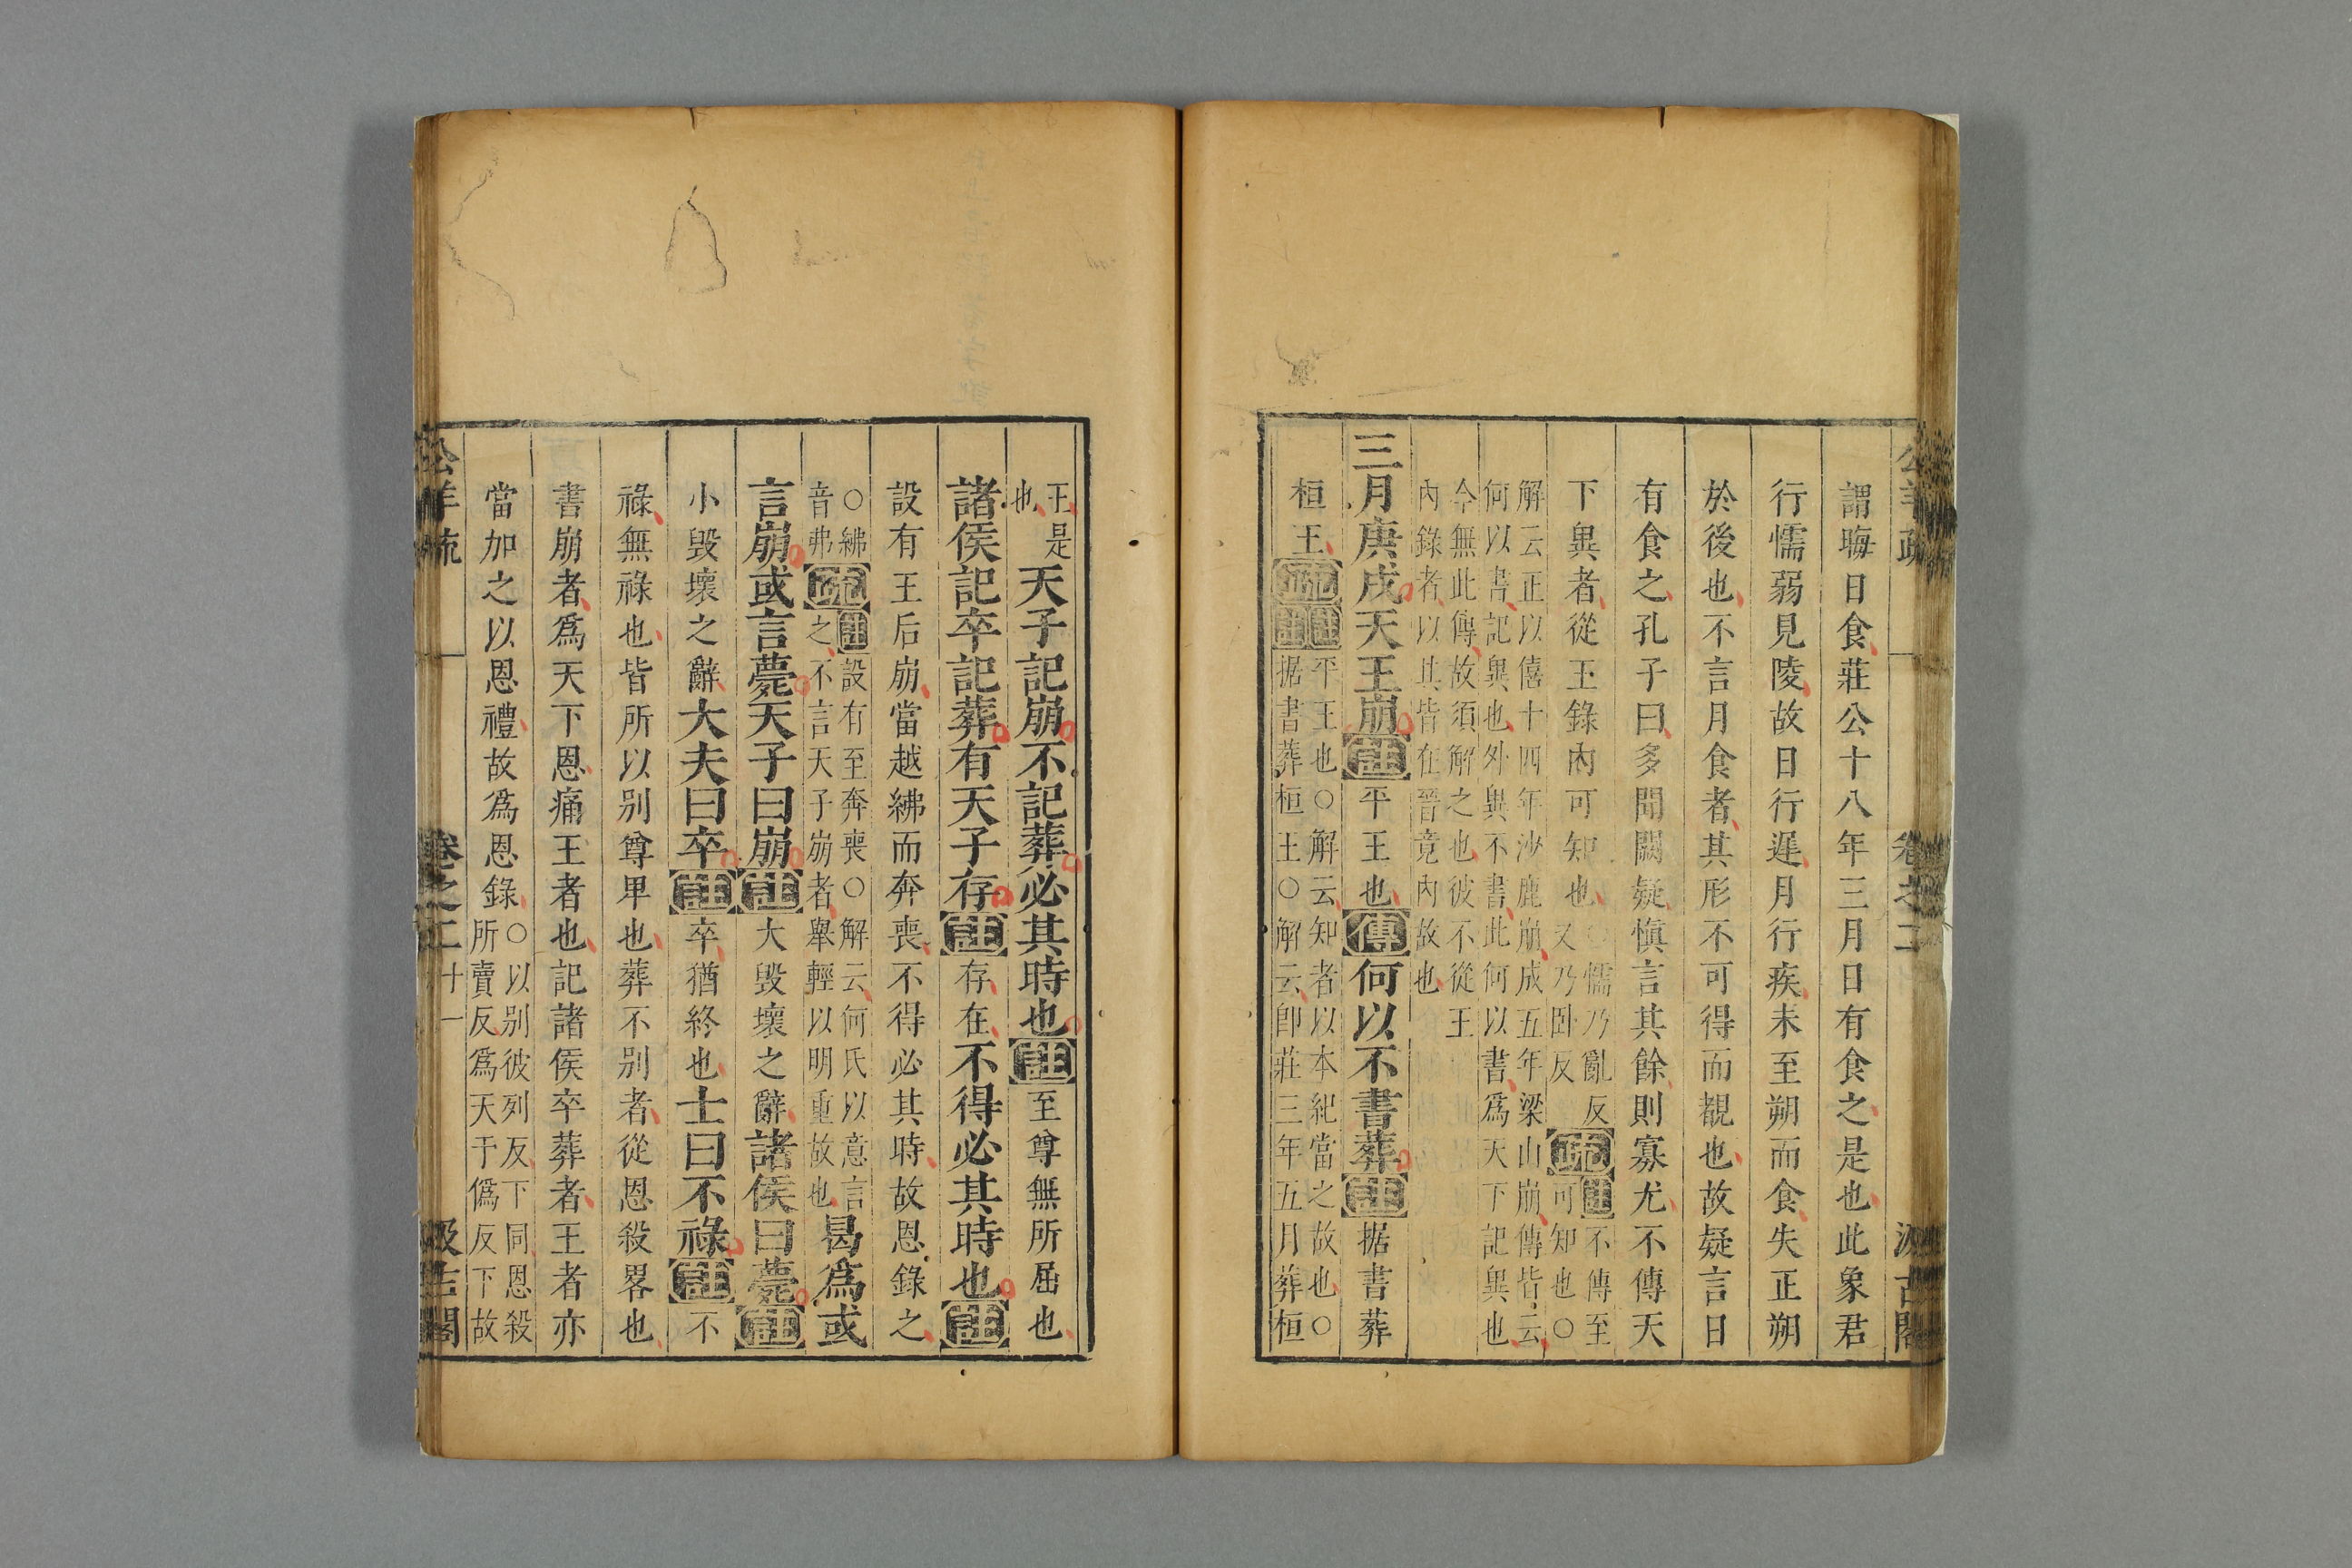 公羊疏 卷之二 汲古閣
謂晦日食莊公十八年三月日有食之是也此象君
行懦弱見陵故日行遲月行疾未至朔而食失正朔
於後也不言月食者其形不可得而覩也故疑言日
有食之孔子曰多聞闕疑慎言其餘則寡尤不傳天
下異者從王錄內可知也○懦乃亂反又乃臥反疏註不傳至可知也○
解云正以僖十四年沙鹿崩成五年梁山崩傳皆云何以書記異也外異不書此何以書爲天下記異也
今無此傳故須解之也彼不從王內錄者以其皆在晉竟內故也
三月庚戌天王崩註平王也傳何以不書葬註据書葬
桓王疏註平王也○解云知者以本紀當之故也○註据書葬桓王○解云卽莊三年五月葬桓
王是也天子記崩不記葬必其時也註至尊無所屈也
諸侯記卒記葬有天子存註存在不得必其時也註
設有王后崩當越紼而奔喪不得必其時故恩錄之
○紼音弗疏註設有至奔喪○解云何氏以意言之不言天子崩者舉輕以明重故也曷爲或
言崩或言薨天子曰崩註大毀壞之辭諸侯曰薨註
小毀壞之辭大夫曰卒註卒猶終也士曰不祿註不
祿無祿也皆所以別尊卑也葬不別者從恩殺畧也
書崩者爲天下恩痛王者也記諸侯卒葬者王者亦
當加之以恩禮故爲恩錄○以別彼列反下同恩殺所賣反爲天于僞反下故
公羊疏 卷之二 十一 汲古閣